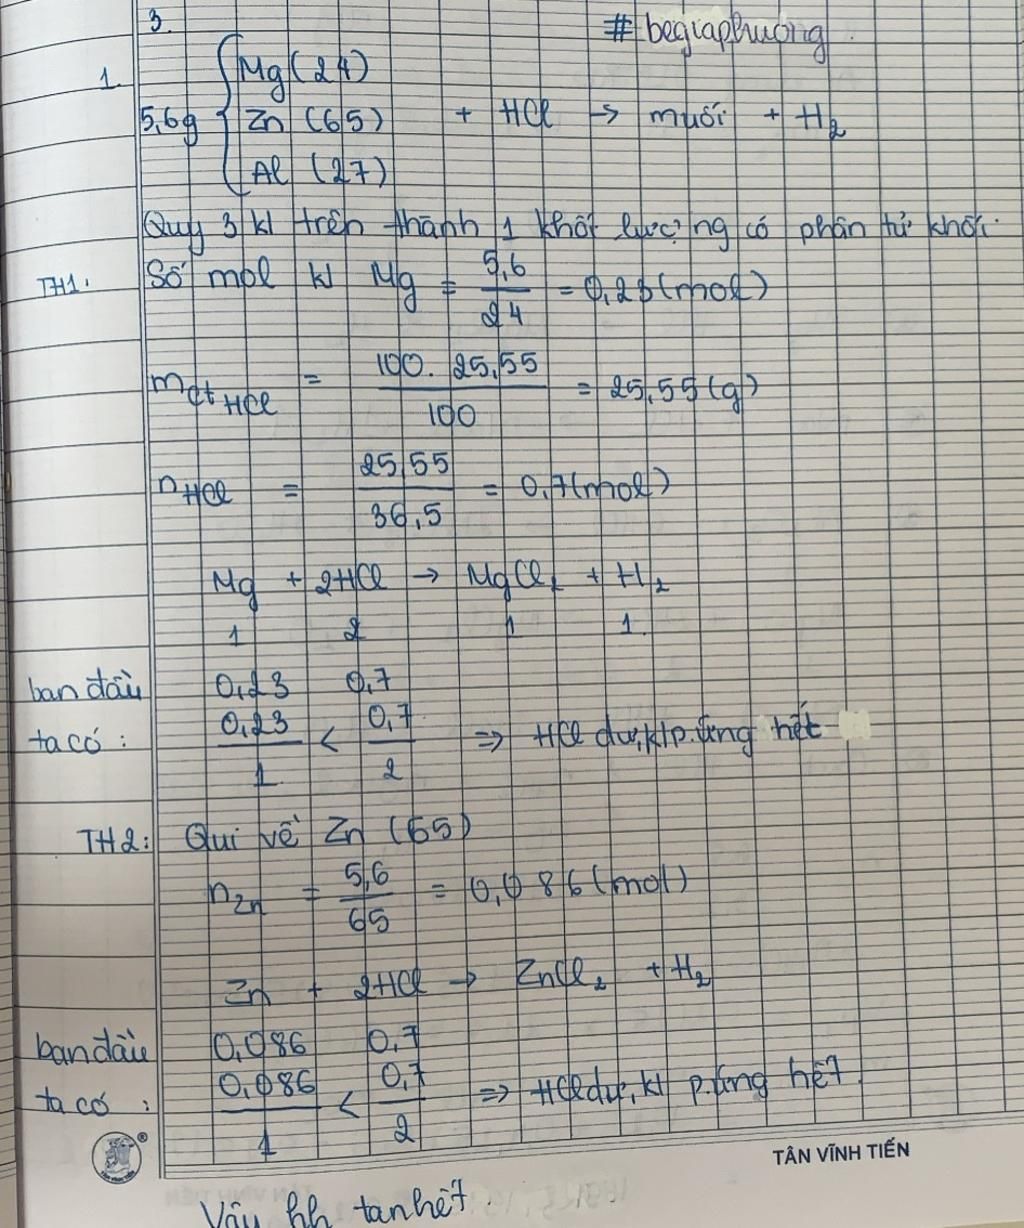 3.
# begiaphuong
1. Mg (24)
5,6g Zn (65) + HCl → muối + H₂
Al (27)
Quy 3 kl trên thành 1 khối lượng có phân tử khối.
TH1. Số mol kl Mg = 5,6/24 = 0,23 (mol)
mct HCl = 100. 25,55/100 = 25,55 (g)
nHCl = 25,55/36,5 = 0,7 (mol)
Mg + 2HCl → MgCl₂ + H₂
1 2 1 1
ban đầu 0,23 0,7
ta có : 0,23/1 < 0,7/2 ⇒ HCl dư, kl p.ứng hết
TH2: Qui về Zn (65)
nZn = 5,6/65 = 0,086 (mol)
Zn + 2HCl → ZnCl₂ + H₂
ban đầu 0,086 0,7
ta có : 0,086/1 < 0,7/2 ⇒ HCl dư, kl p.ứng hết
TÂN VĨNH TIẾN
Vậy hh tan hết.